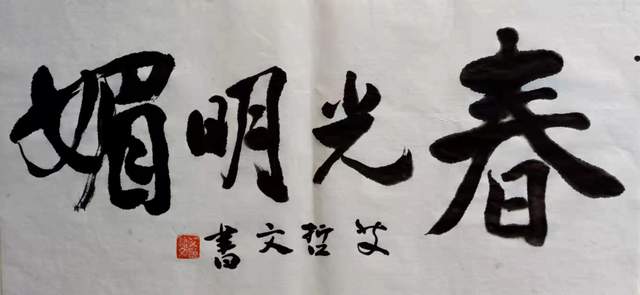 春光明媚
艾哲文書